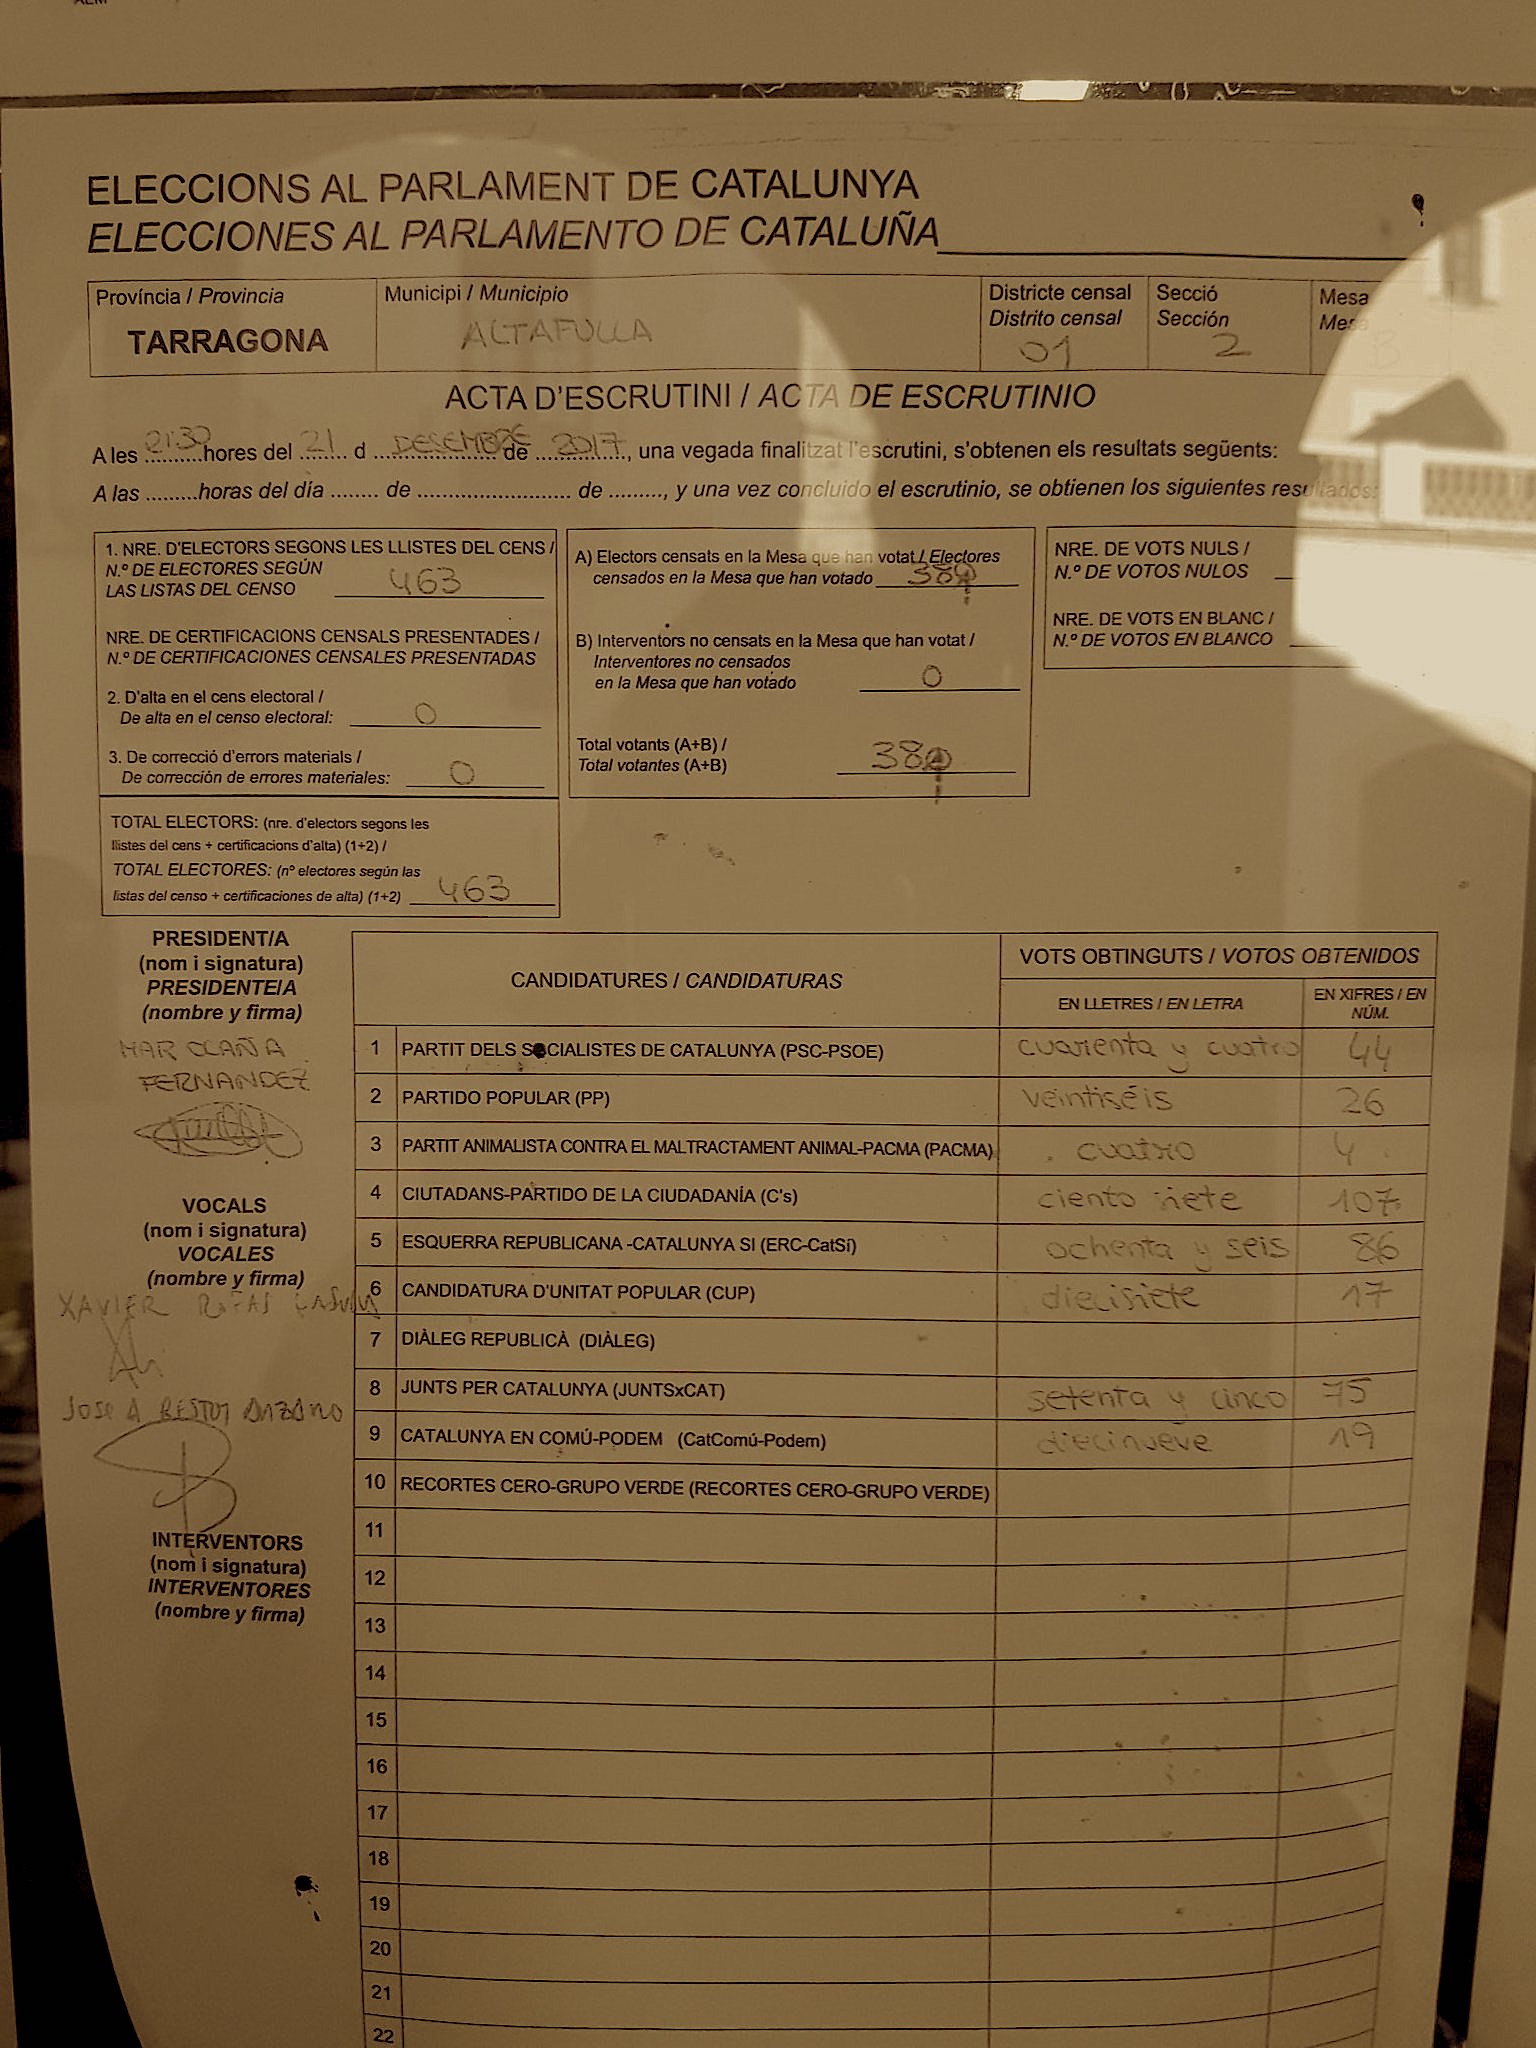 ELECCIONS AL PARLAMENT DE CATALUNYA
ELECCIONES AL PARLAMENTO DE CATALUÑA
Província / Provincia
TARRAGONA
Municipi / Municipio
ALTAFULLA
Districte censal
Distrito censal
01
Secció
Sección
2
Mesa
Mesa
B
ACTA D'ESCRUTINI / ACTA DE ESCRUTINIO
A les 21:30 hores del 21 d DESEMBRE de 2017, una vegada finalitzat l'escrutini, s'obtenen els resultats següents:
A las .........horas del día ........ de .......................... de ........., y una vez concluido el escrutinio, se obtienen los siguientes resultados:
1. NRE. D'ELECTORS SEGONS LES LLISTES DEL CENS /
N.º DE ELECTORES SEGÚN
LAS LISTAS DEL CENSO 463
NRE. DE CERTIFICACIONS CENSALS PRESENTADES /
N.º DE CERTIFICACIONES CENSALES PRESENTADAS
2. D'alta en el cens electoral /
De alta en el censo electoral: 0
3. De correcció d'errors materials /
De corrección de errores materiales: 0
TOTAL ELECTORS: (nre. d'electors segons les
llistes del cens + certificacions d'alta) (1+2) /
TOTAL ELECTORES: (nº electores según las
listas del censo + certificaciones de alta) (1+2) 463
A) Electors censats en la Mesa que han votat / Electores
censados en la Mesa que han votado
B) Interventors no censats en la Mesa que han votat /
Interventores no censados
en la Mesa que han votado 0
Total votants (A+B) /
Total votantes (A+B)
NRE. DE VOTS NULS /
N.º DE VOTOS NULOS
NRE. DE VOTS EN BLANC /
N.º DE VOTOS EN BLANCO
PRESIDENT/A
(nom i signatura)
PRESIDENTE/A
(nombre y firma)
MAR OLAÑA
FERNANDEZ
VOCALS
(nom i signatura)
VOCALES
(nombre y firma)
XAVIER
JOSE A
INTERVENTORS
(nom i signatura)
INTERVENTORES
(nombre y firma)
CANDIDATURES / CANDIDATURAS
VOTS OBTINGUTS / VOTOS OBTENIDOS
EN LLETRES / EN LETRA
EN XIFRES / EN
NÚM.
1 PARTIT DELS SOCIALISTES DE CATALUNYA (PSC-PSOE) cuarenta y cuatro 44
2 PARTIDO POPULAR (PP) veintiséis 26
3 PARTIT ANIMALISTA CONTRA EL MALTRACTAMENT ANIMAL-PACMA (PACMA) cuatro 4
4 CIUTADANS-PARTIDO DE LA CIUDADANÍA (C's) ciento siete 107
5 ESQUERRA REPUBLICANA -CATALUNYA SI (ERC-CatSí) ochenta y seis 86
6 CANDIDATURA D'UNITAT POPULAR (CUP) diecisiete 17
7 DIÀLEG REPUBLICÀ (DIÀLEG)
8 JUNTS PER CATALUNYA (JUNTSxCAT) setenta y cinco 75
9 CATALUNYA EN COMÚ-PODEM (CatComú-Podem) diecinueve 19
10 RECORTES CERO-GRUPO VERDE (RECORTES CERO-GRUPO VERDE)
11
12
13
14
15
16
17
18
19
20
21
22